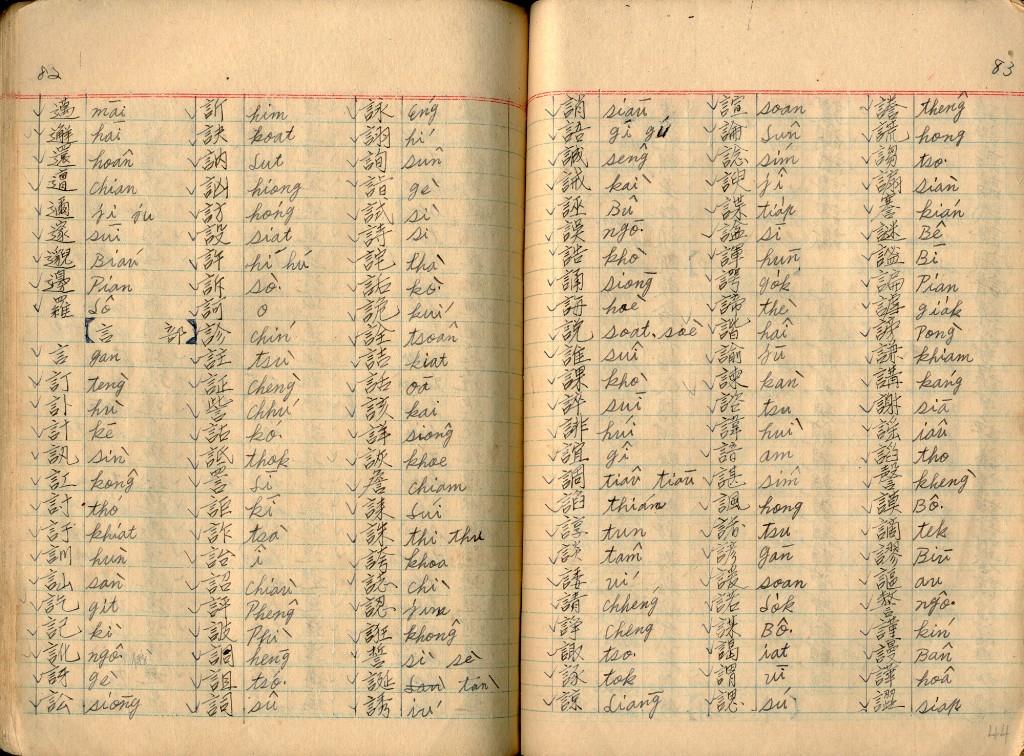 82
邁 māi
邂 hāi
還 hoân
邅 chian
邇 jí jú
邃 sūi
邈 Biáu
邊 Pian
羅 Lô
言 部
言 gân
訂 tèng
訃 hù
計 kè
訊 sìn
訌 kông
討 thó
訐 khiat
訓 hùn
訕 sàn
訖 git
記 kì
訛 ngô͘
訝 gè
訟 siōng
訢 him
訣 koat
訥 Lut
訩 hiong
訪 hóng
設 siat
許 hí hú
訴 sò͘
訶 o
診 chín
註 tsù
証 chèng
訾 chhú
詁 kó͘
詆 thok
詈 Lī
詎 kī
詐 tsà
詒 î
詔 chiàu
評 Phêng
詖 Phì
詗 hēng
詛 tsó͘
詞 sû
詠 éng
詡 hí
詢 sûn
詣 gè
試 sì
詩 si
詫 thà
詁 kò͘
詭 kuí
詮 tsoân
詰 kiat
話 oā
該 kai
詳 siông
詼 khoe
詹 chiam
誄 Luī
誅 thi thu
誇 khoa
誌 chì
認 jīm
誑 không
誓 sì sè
誕 tàn
誘 iú
83
誚 siàu
語 gí gú
誠 sêng
誡 kài
誣 Bû
誤 ngō͘
誥 khò
誦 siōng
誨 hoè
說 soat, soè
誰 suî
課 khò
誶 suī
誹 huí
誼 gî
調 tiâu tiāu
諂 thiám
諄 tun
談 tâm
諉 uí
請 chhéng
諍 cheng
諏 tso͘
諑 tok
諒 Liāng
諠 soan
論 Lūn
諗 sím
諛 jû
諜 tiáp
諡 sī
諢 hūn
諤 gók
諦 thè
諧 hâi
諭 jū
諫 kàn
諮 tsu
諱 huì
諳 am
諶 sîm
諷 hong
諸 tsu
諺 gān
諼 soan
諾 Lók
謀 Bô͘
謁 iat
謂 uī
謖 sú
謄 thêng
謊 hong
謅 tso͘
謆 siàn
謇 kián
謎 Bê
謐 Bī
諞 Pián
謔 giák
謗 Pòng
謙 khiam
講 káng
謝 siā
謠 iâu
謟 tho
謦 khèng
謨 Bô͘
謫 tek
謬 Biū
謳 au
謷 ngô͘
謹 kín
謾 Bān
譁 hoâ
譅 siap
44